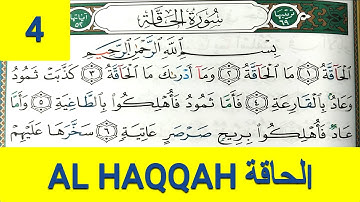 4
ترتيبها ٦٩
سُورَةُ الْحَاقَّةِ
آياتها ٥٢
بِسْمِ اللَّهِ الرَّحْمَٰنِ الرَّحِيمِ
الْحَاقَّةُ ١ مَا الْحَاقَّةُ ٢ وَمَا أَدْرَىٰكَ مَا الْحَاقَّةُ ٣ كَذَّبَتْ ثَمُودُ
وَعَادٌ بِالْقَارِعَةِ ٤ فَأَمَّا ثَمُودُ فَأُهْلِكُوا بِالطَّاغِيَةِ ٥ وَأَمَّا
عَادٌ فَأُهْلِكُوا بِرِيحٍ صَرْصَرٍ عَاتِيَةٍ ٦ سَخَّرَهَا عَلَيْهِمْ
AL HAQQAH الحاقة